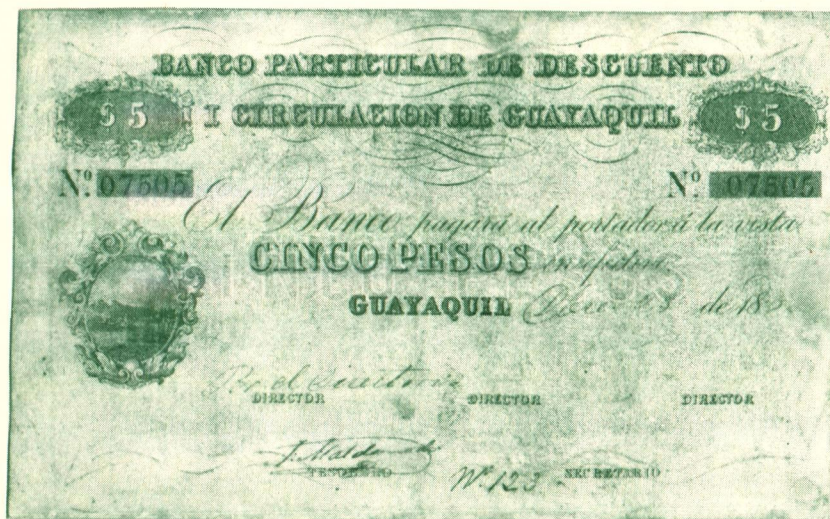 BANCO PARTICULAR DE DESCUENTO
$ 5 I CIRCULACION DE GUAYAQUIL $ 5
Nº. 07505 Nº. 07505
El Banco pagará al portador á la vista
CINCO PESOS en efectivo
GUAYAQUIL de 18
Por el Directorio
DIRECTOR DIRECTOR DIRECTOR
TESORERO Nº 123 SECRETARIO